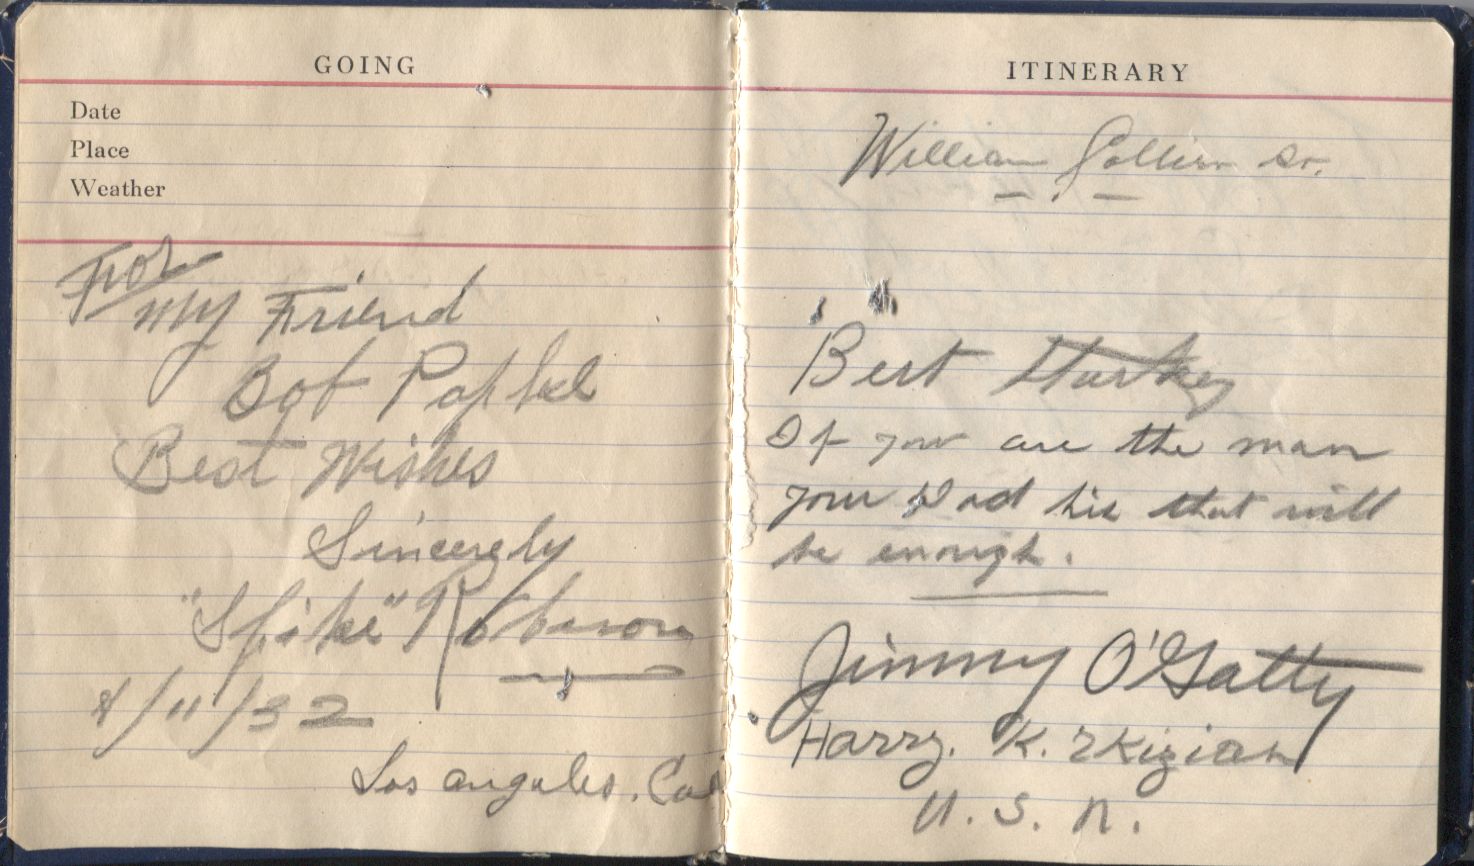 GOING
Date
Place
Weather
For
My Friend
Bob
Best Wishes
Sincerely
"Spike" Robinson
4/11/32
Los angeles. Cal
ITINERARY
William Collier Sr.
Bert Starkey
If your are the man
your Dad his that will
be enough.
Jimmy O'Gatty
Harry. K. Ekizian
U. S. N.